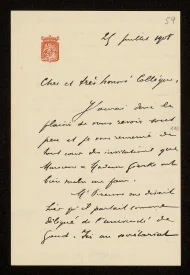 59
25 juillet 1908
Cher et très honoré Collègue,
J'aurai donc le
plaisir de vous revoir sous
peu et je vous remercie de
tout cœur des invitations que
Monsieur et Madame
bien me faire.
M. me disait
hier qu'il partait comme
délégué de l'université de
Gand. J'ai au secrétariat